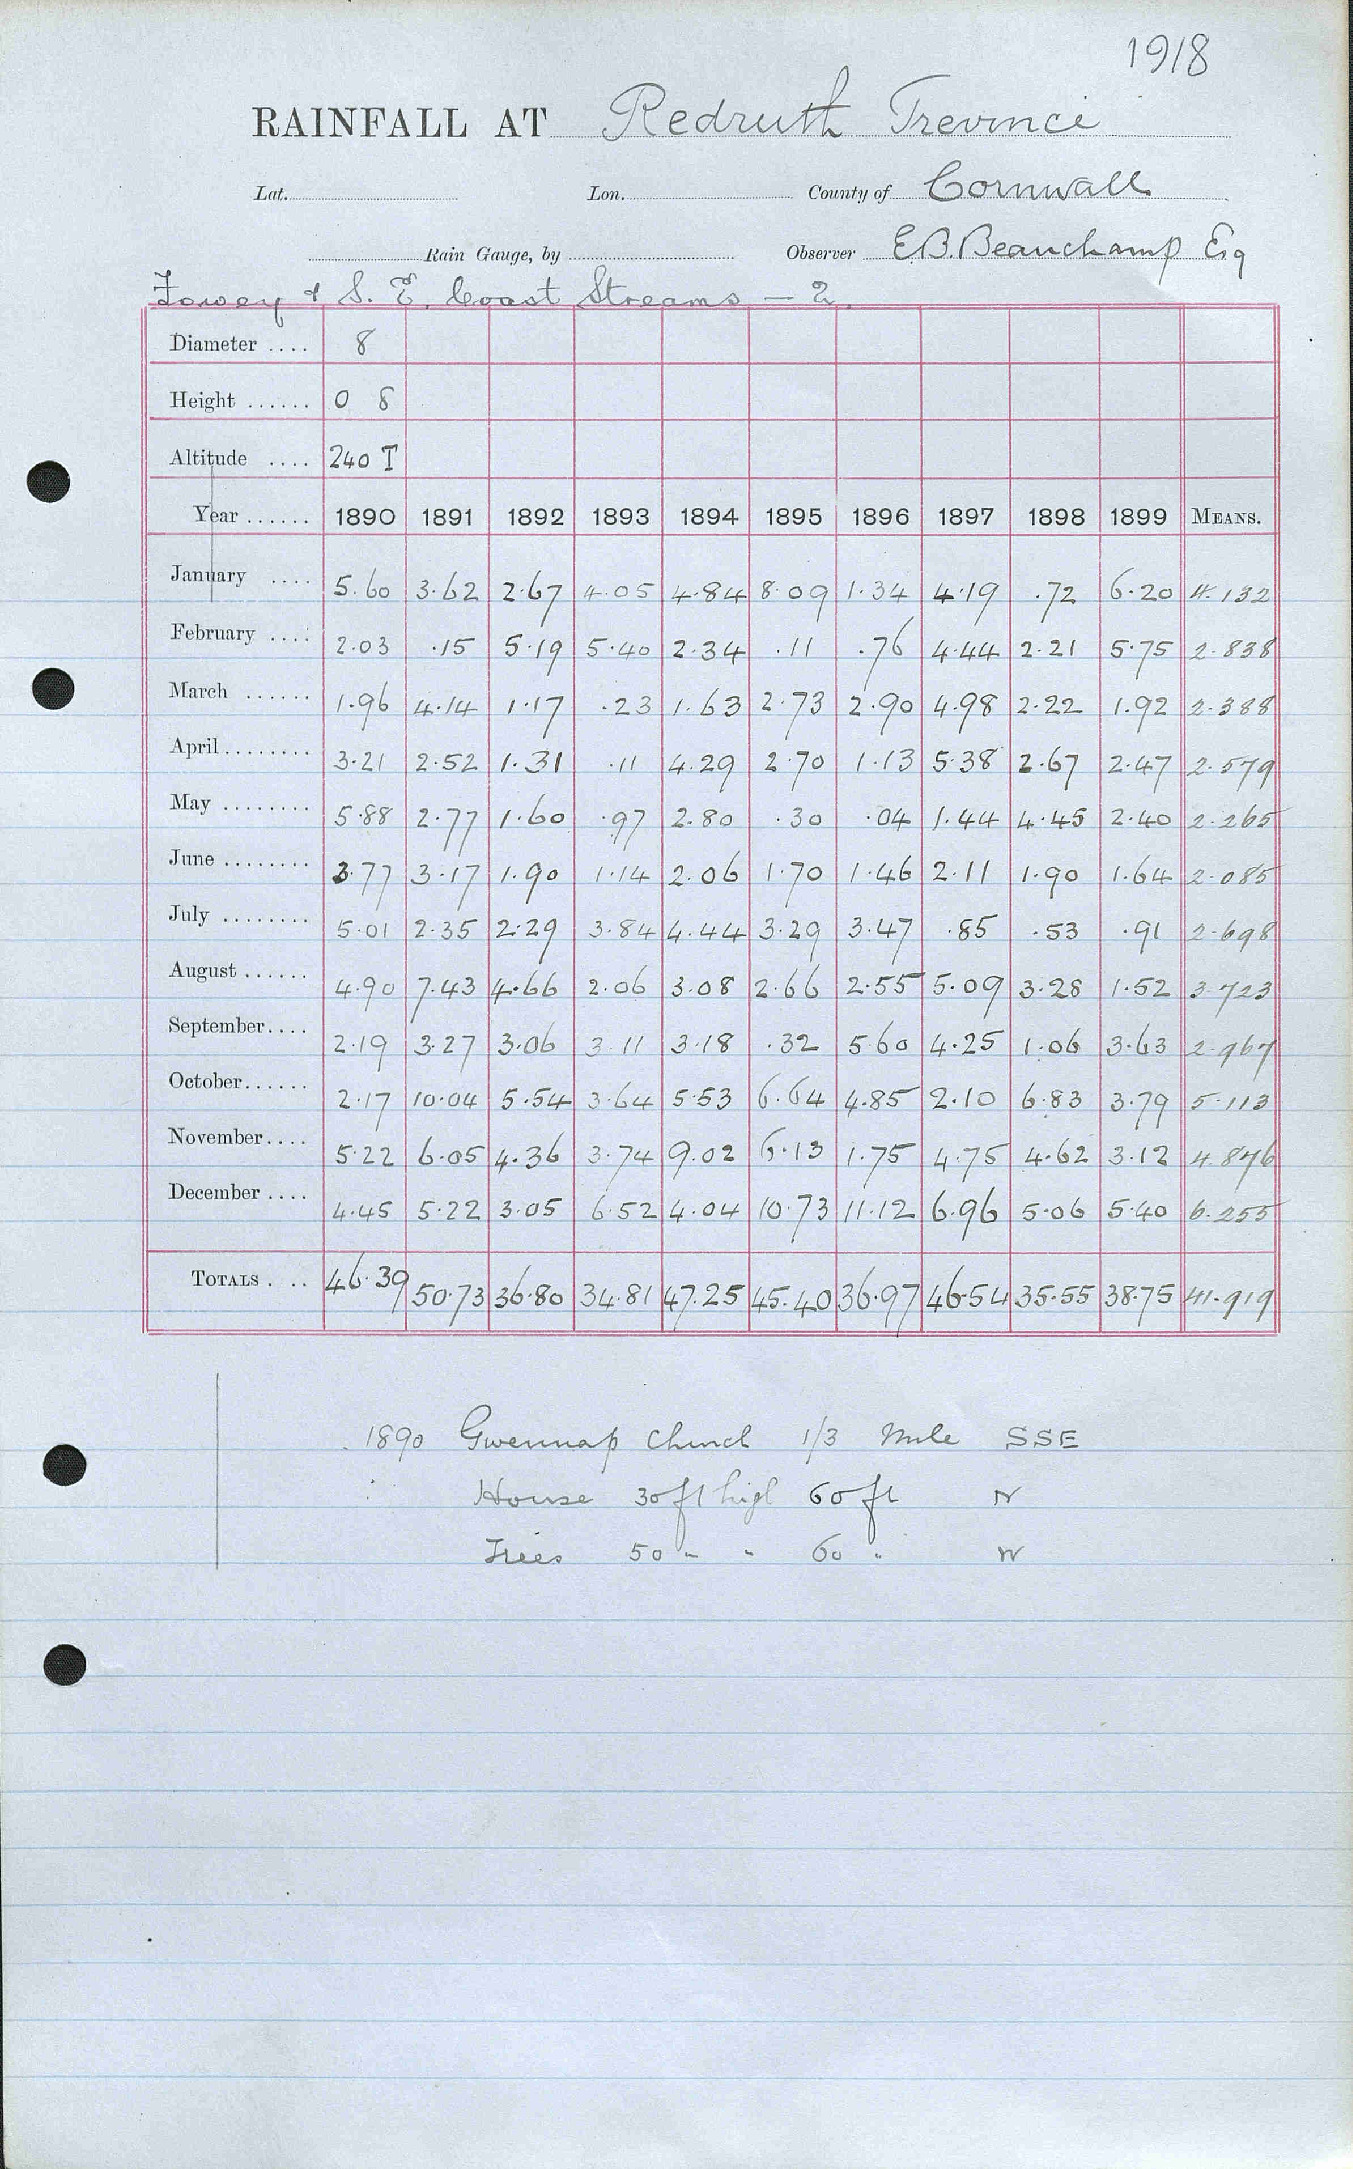 1918
RAINFALL AT Redruth Trevince
Lat. Lon. County of Cornwall
Rain Gauge, by Observer E.B. Beauchamp Esq
Fowey & S. E. Coast Streams — 2.
Diameter .... 8
Height ...... 0 8
Altitude .... 240 T
Year ...... 1890 1891 1892 1893 1894 1895 1896 1897 1898 1899 MEANS.
January .... 5.60 3.62 2.67 4.05 4.84 8.09 1.34 4.19 .72 6.20 4.132
February .... 2.03 .15 5.19 5.40 2.34 .11 .76 4.44 2.21 5.75 2.838
March ...... 1.96 4.14 1.17 .23 1.63 2.73 2.90 4.98 2.22 1.92 2.388
April ........ 3.21 2.52 1.31 .11 4.29 2.70 1.13 5.38 2.67 2.47 2.579
May ........ 5.88 2.77 1.60 .97 2.80 .30 .04 1.44 4.45 2.40 2.265
June ........ 3.77 3.17 1.90 1.14 2.06 1.70 1.46 2.11 1.90 1.64 2.085
July ........ 5.01 2.35 2.29 3.84 4.44 3.29 3.47 .85 .53 .91 2.698
August ...... 4.90 7.43 4.66 2.06 3.08 2.66 2.55 5.09 3.28 1.52 3.723
September.... 2.19 3.27 3.06 3.11 3.18 .32 5.60 4.25 1.06 3.63 2.967
October...... 2.17 10.04 5.54 3.64 5.53 6.64 4.85 2.10 6.83 3.79 5.113
November.... 5.22 6.05 4.36 3.74 9.02 6.13 1.75 4.75 4.62 3.12 4.876
December .... 4.45 5.22 3.05 6.52 4.04 10.73 11.12 6.96 5.06 5.40 6.255
TOTALS . .. 46.39 50.73 36.80 34.81 47.25 45.40 36.97 46.54 35.55 38.75 41.919
1890 Gwennap Church 1/3 Mile SSE
House 30 ft high 60 ft N
Trees 50 " " 60 " W